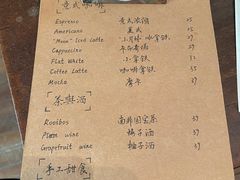 意式咖啡
Espresso 意式浓缩
Americano 美式
"Moon" Iced Latte "小月球"冰拿铁
Cappuccino 卡布奇诺
Flat White 小拿铁
Coffee Latte 咖啡拿铁 39
Mocha 摩卡 39
茶与酒
Rooibos 南非国宝茶 39
Plum wine 梅子酒 39
Grapefruit wine 柚子酒 39
手工甜食